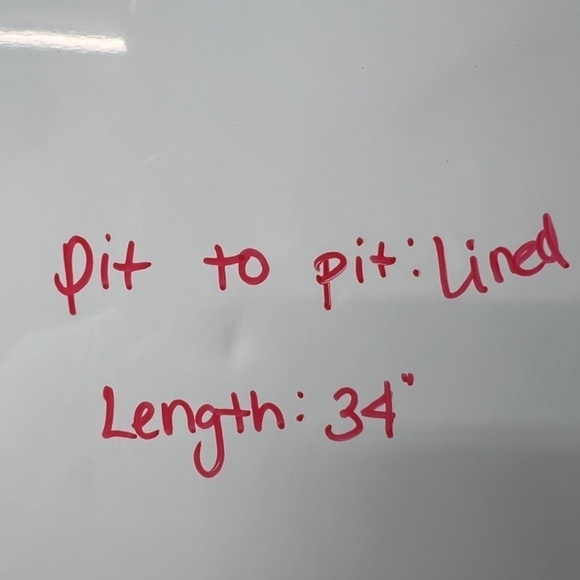 Pit to pit: Lined
Length: 34"